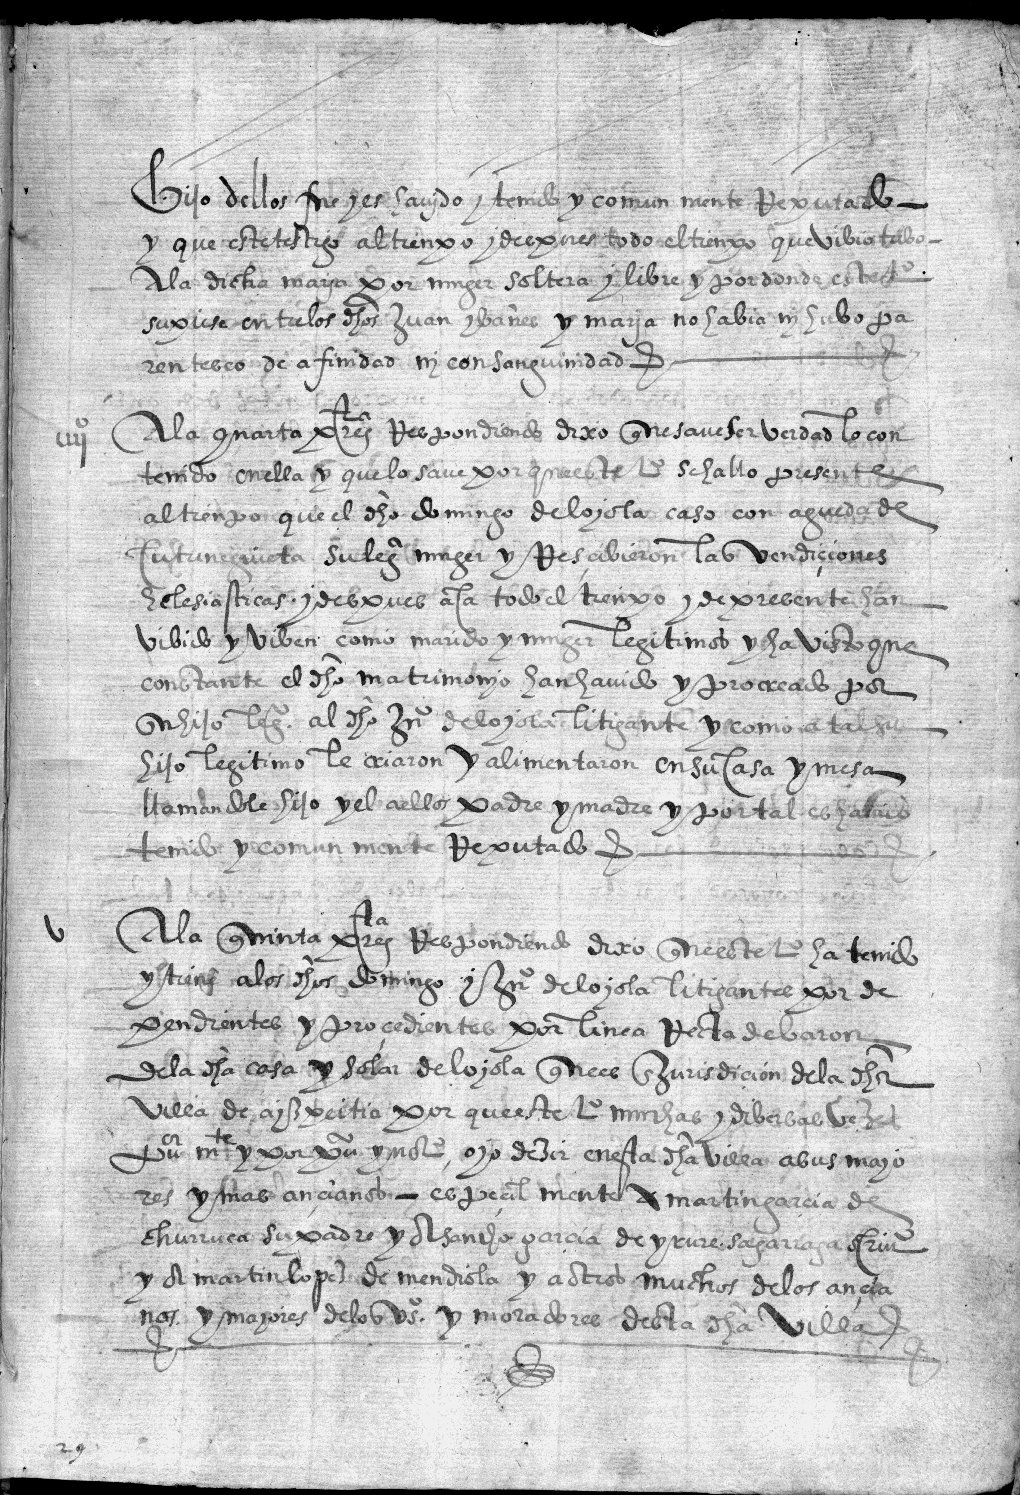 hijo dellos fue y es havido y tenido y comun mente Reputado
y que este testigo al tienpo y despues todo el tienpo que vibio tubo
A la dicha maria por muger soltera y libre y por donde este tº
supiese entre los dhos Juan yvañes y maria no habia ni hubo pa
rentesco de afinidad ni consanguinidad
iiijº A la quarta preg.ta Respondiendo dixo que save ser verdad lo con
tenido en ella y que lo save por que este tº se hallo presente
al tienpo que el dho domingo de loyola caso con agueda de
su leg.ma muger y Rescibieron las vendiçiones
Eclesiasticas y despues aca todo el tienpo y de presente han
vibido y viben como marido y muger legitimos y ha visto que
constante el dho matrimonio han havido y procreado por
su hijo leg.º al dho Juº de loyola litigante y como a tal su
hijo legitimo le criaron y alimentaron en su casa y mesa
llamandole hijo y el a ellos padre y madre y por tal es havido
tenido y comun mente Reputado
v A la quinta preg.ta Respondiendo dixo que este tº ha tenido
y tiene a los dhos domingo y Juº de loyola litigantes por de
pendientes y proçedientes por linea Recta de varon
de la dha casa y solar de loyola que es en Jurisdicion de la dha
Villa de ayzpeitia por que este tº muchas y diversas vezes
pu.ca m.te y por pu.co y no.to oyo dezir en esta dha villa a sus mayo
res y mas ançianos espeçial mente a martin garcia de
churruca su padre y a sancho garcia de yrure sagarraga scriu.º
y a martin lopes de mendiola y a otros muchos de los ançia
nos y mayores de los vº.s y moradores desta dha Villa
29